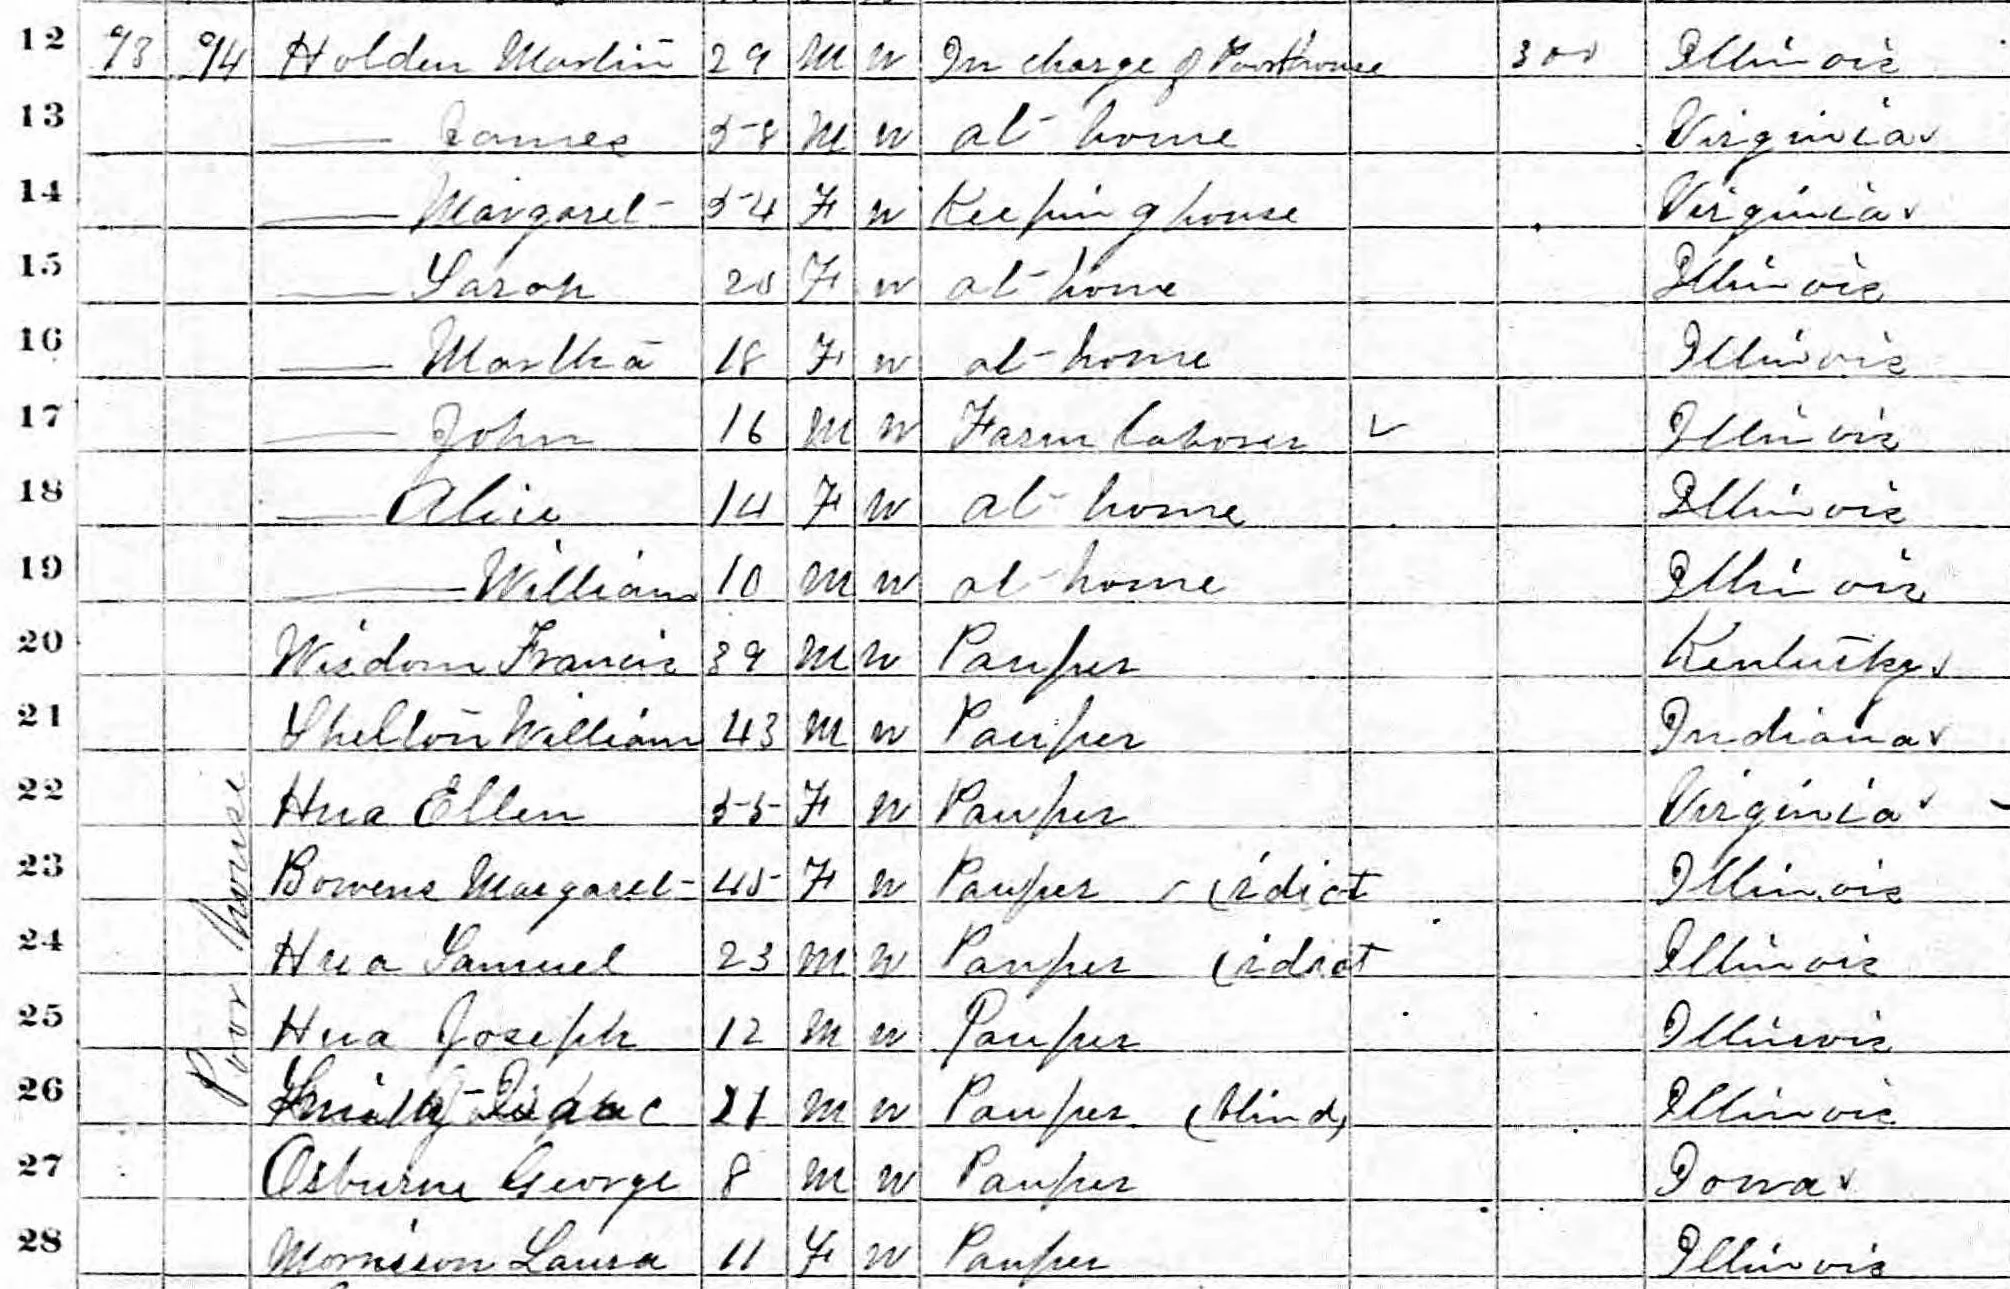 12 93 94 Holden Martin 29 M W In charge of Poorhouse 300 Illinois
13 — James 58 M W at home Virginia
14 — Margaret 54 F W Keeping house Virginia
15 — Sarah 20 F W at home Illinois
16 — Martha 18 F W at home Illinois
17 — John 16 M W Farm laborer Illinois
18 — Alice 14 F W at home Illinois
19 — William 10 M W at home Illinois
20 Wisdom Francis 39 M W Pauper Kentucky
21 Shelton William 43 M W Pauper Indiana
22 Hua Ellen 55 F W Pauper Virginia
23 Bowens Margaret 45 F W Pauper (idiot Illinois
24 Hua Samuel 23 M W Pauper (idiot Illinois
25 Hua Joseph 12 M W Pauper Illinois
26 Isaac 21 M W Pauper (blind) Illinois
27 Osburne George 8 M W Pauper Iowa
28 Morrison Laura 11 F W Pauper Illinois
Poor house